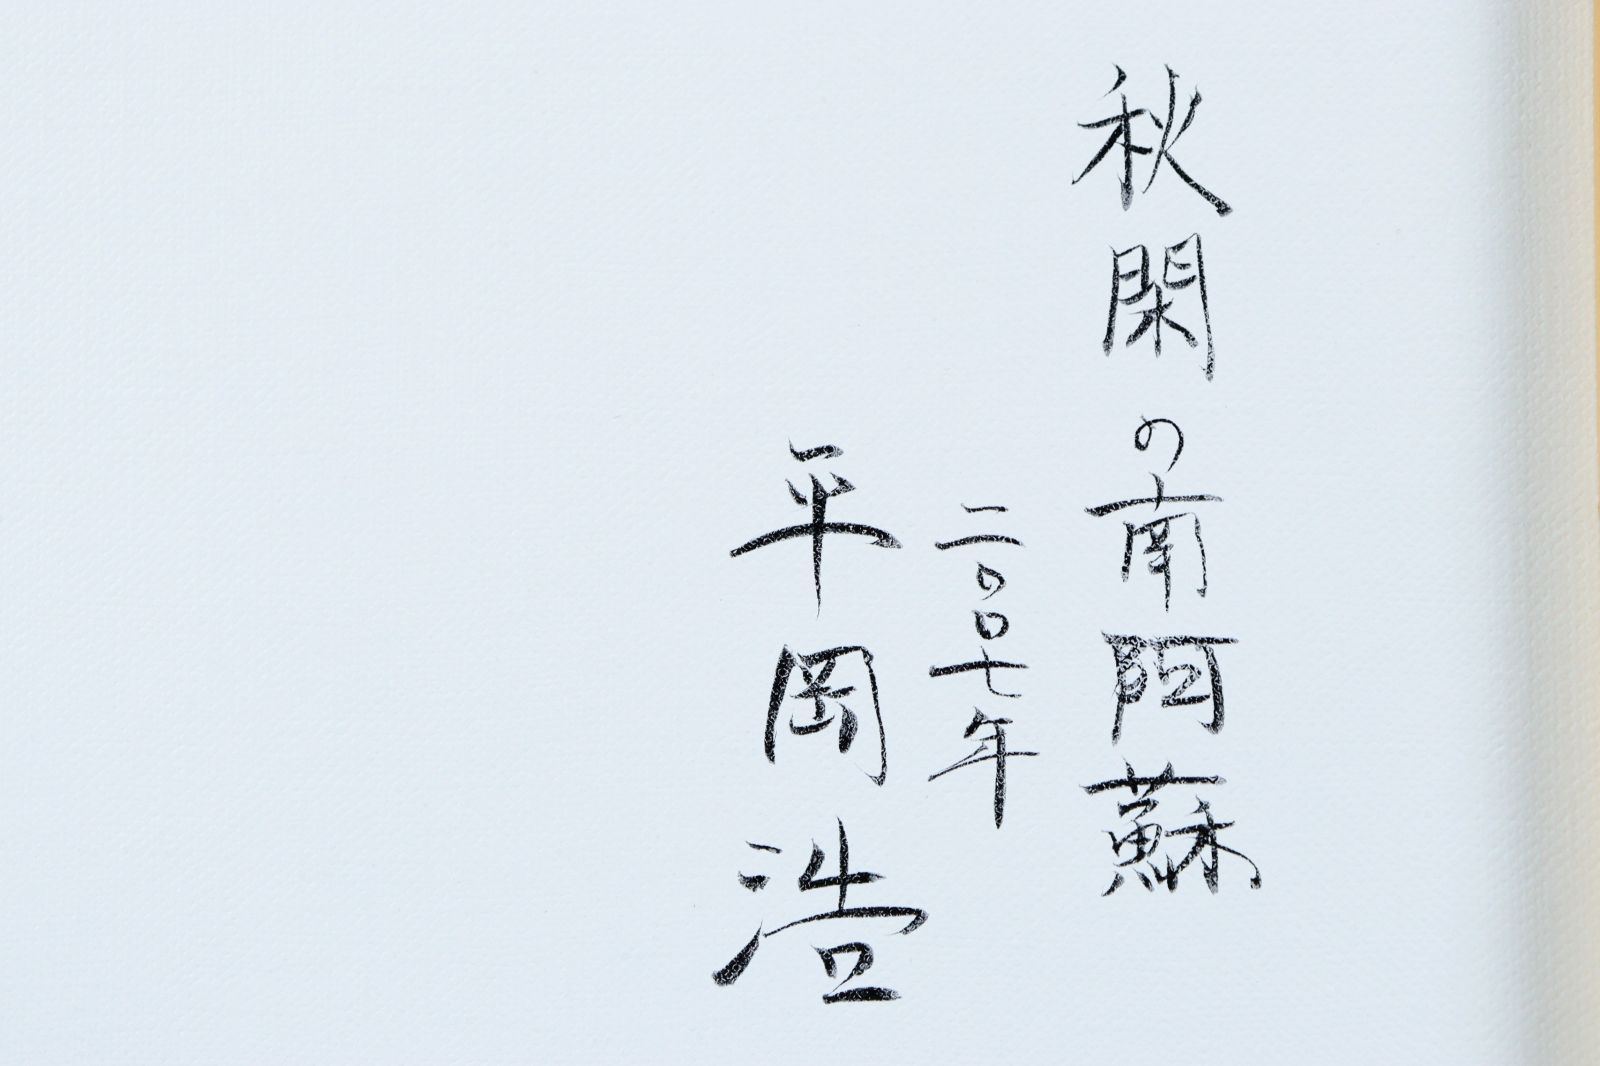 秋閑の南阿蘇
二〇〇七年
平岡浩